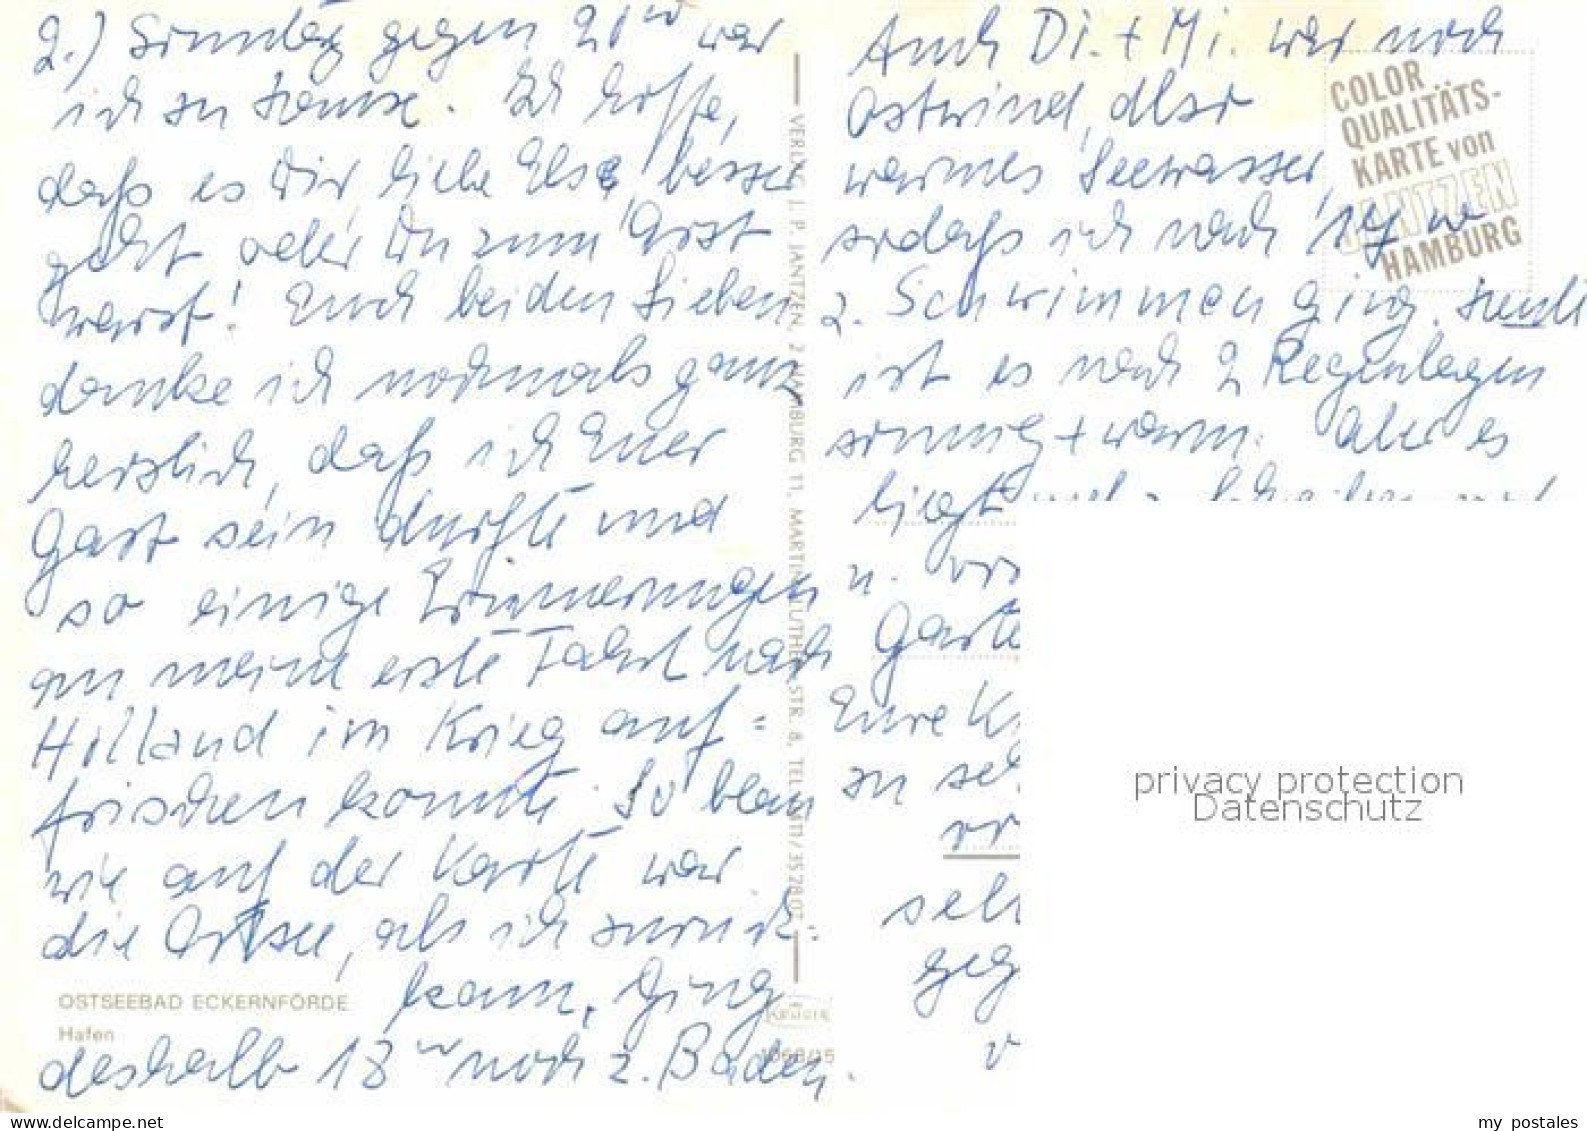 2.) Sonntag gegen 21 w war
ich zu Hause. Ich hoffe,
daß es Dir, liebe Else, besser
geht oder Du zum Arzt
warst! Euch beiden Lieben
danke ich nochmals ganz
herzlich, daß ich Euer
Gast sein durfte und
so einige Erinnerungen
an meine erste Fahrt nach
Holland im Krieg auf=
frischen konnte. So blau
wie auf der Karte war
die Ostsee, als ich zurück=
kam, ging
deshalb 18 w noch z. Baden.
OSTSEEBAD ECKERNFÖRDE
Hafen
VERLAG J. P. JANTZEN, 2 HAMBURG 11, MARTIN-LUTHER-STR. 8, TEL. 0411/35 28 07
KRÜGER
1068/15
Auch Di. + Mi. war noch
Ostwind, also
warmes Seewasser,
sodaß ich nach 19 w
z. Schwimmen ging. Heute
ist es nach 2 Regentagen
sonnig + warm. Aber es
liegt
u. vor
Garte
Eure K
zu se
vo
seh
geg
v
COLOR
QUALITÄTS-
KARTE von
JANTZEN
HAMBURG
privacy protection
Datenschutz
my postales